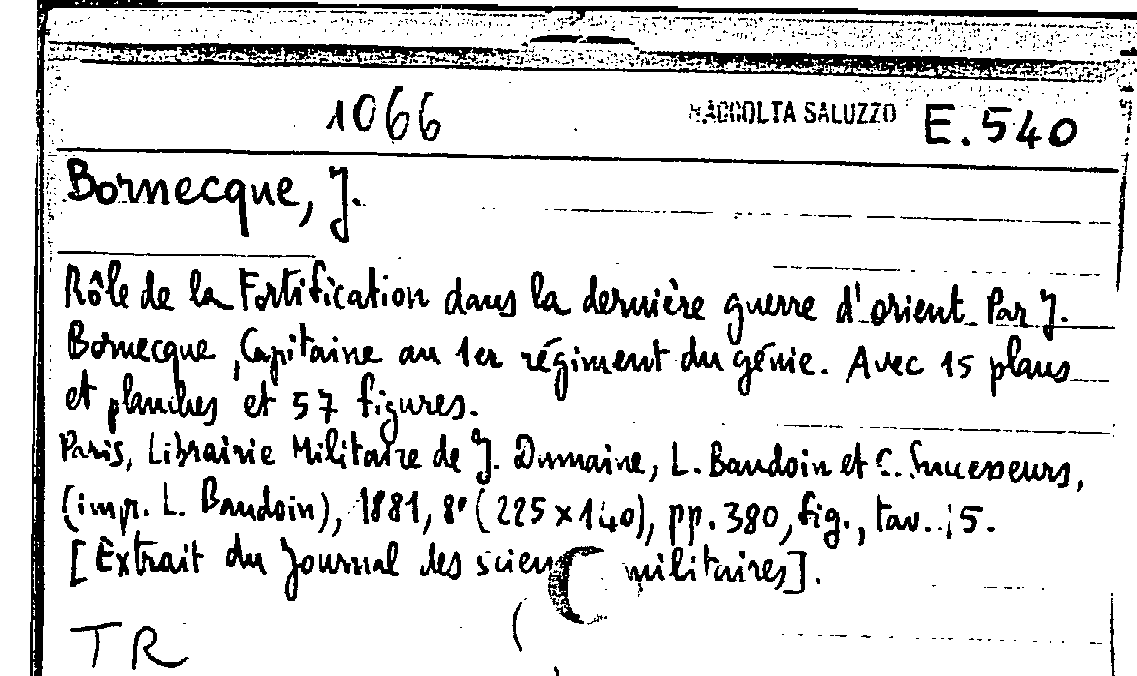 1066 RACCOLTA SALUZZO E.540
Bornecque, J.
Rôle de la Fortification dans la dernière guerre d'orient Par J.
Bornecque, Capitaine au 1er régiment du génie. Avec 15 plans
et planches et 57 figures.
Paris, Librairie Militaire de J. Dumaine, L. Baudoin et C. Successeurs,
(impr. L. Baudoin), 1881, 8° (225×140), pp. 380, fig., tav. 15.
[Extrait du Journal des scien militaires].
TR